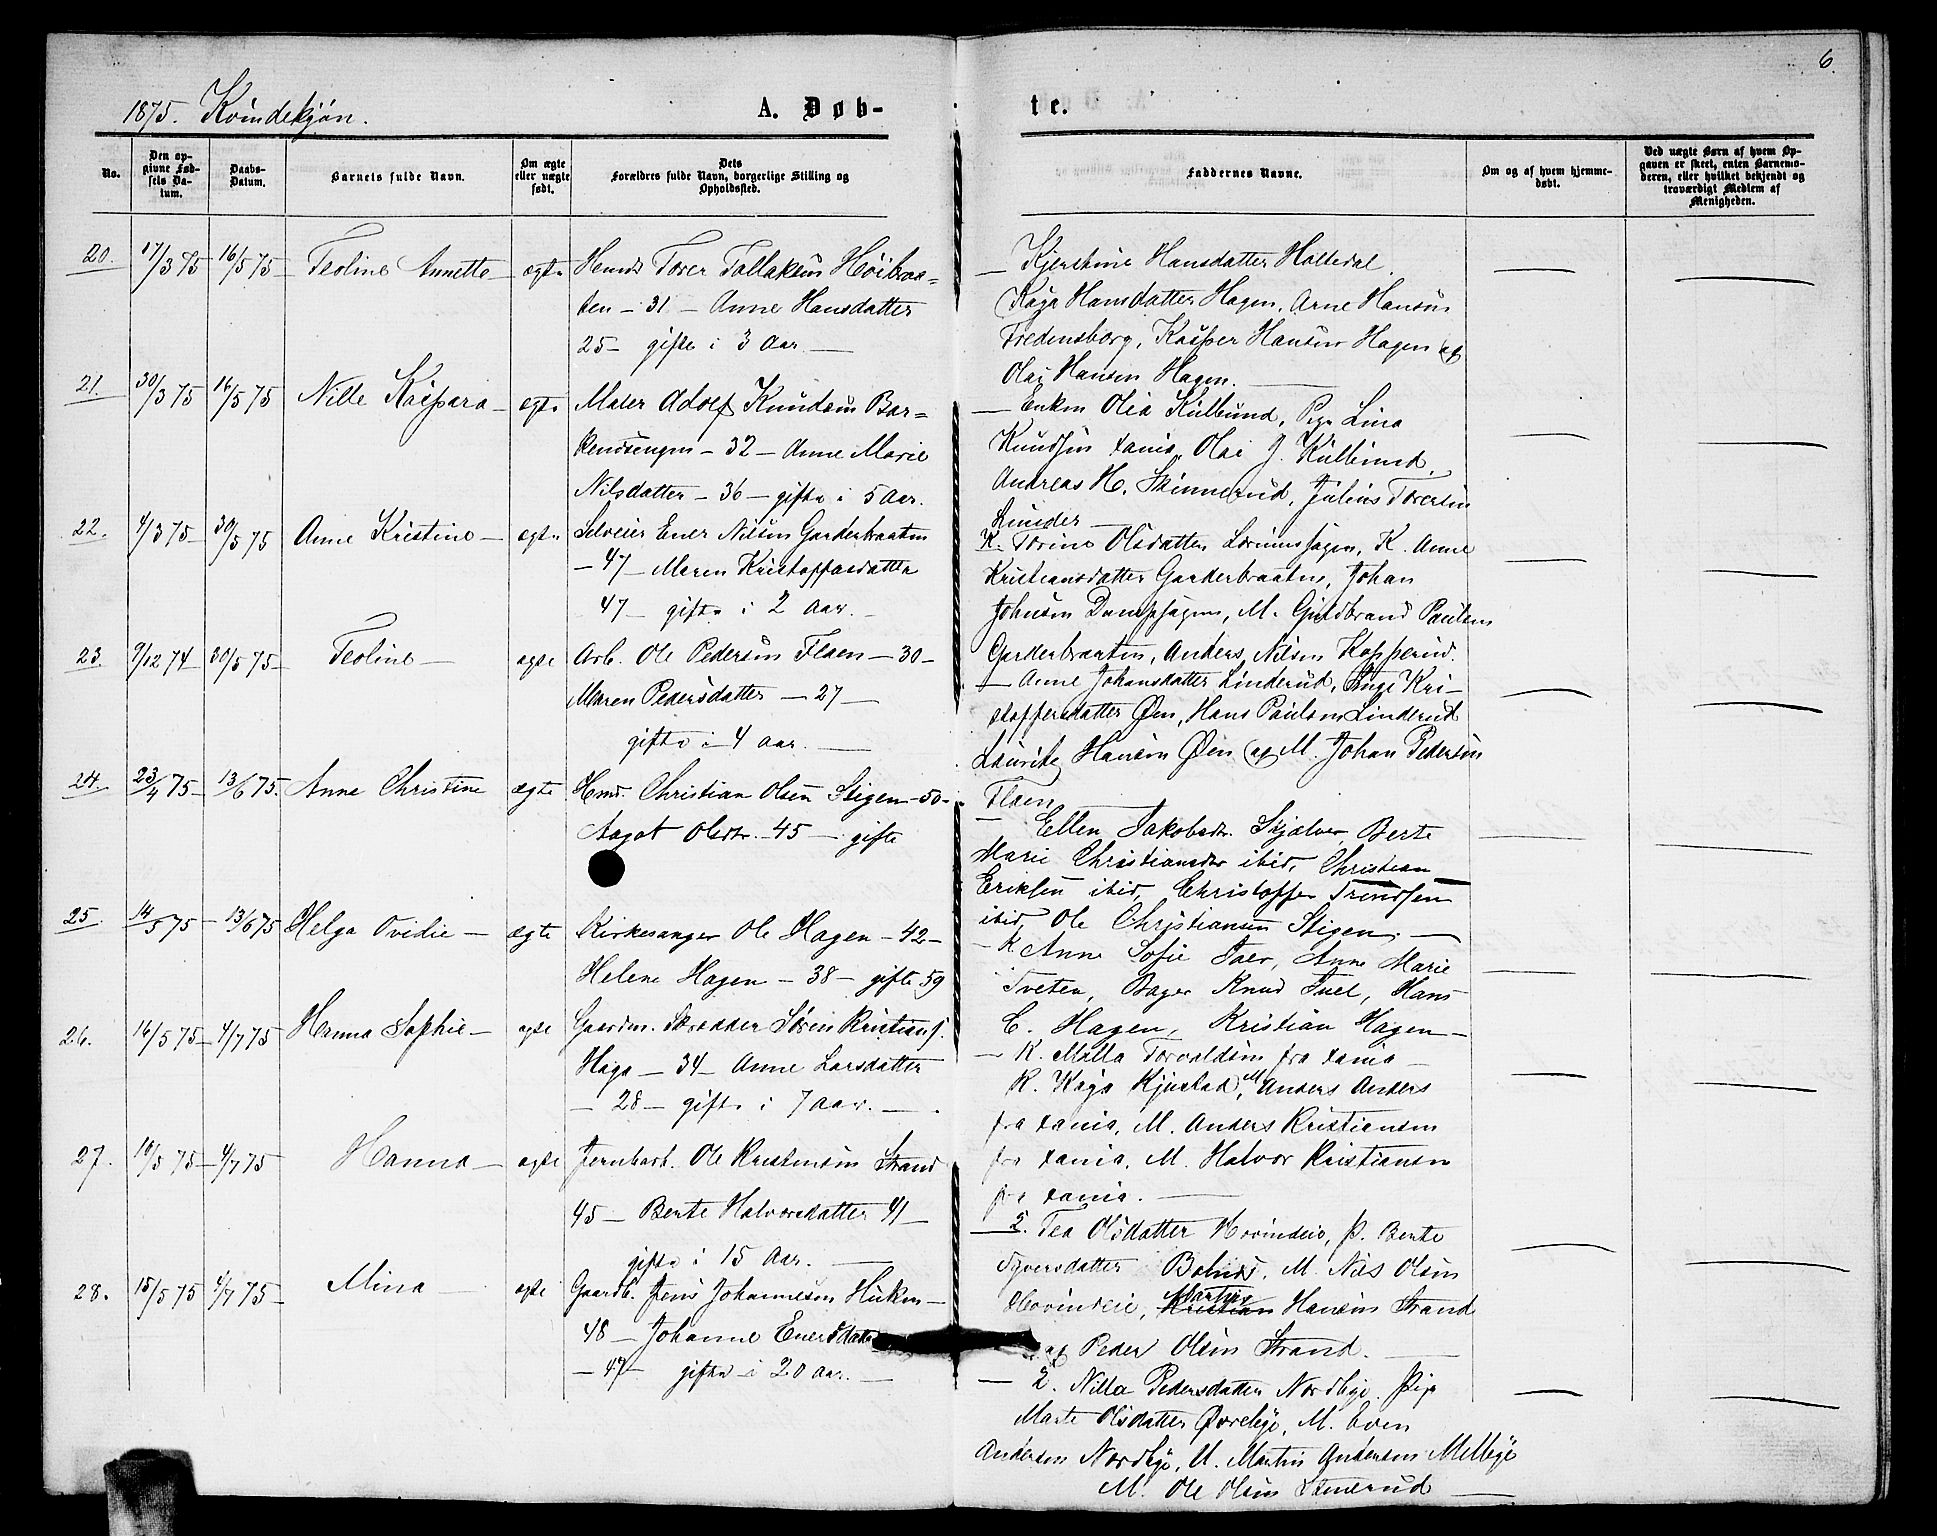 6.
1875. Kvindekjøn.
A. Døb-
te.
No.
Den op-
givne Fød-
sels Da-
tum.
Daabs-
Datum.
Barnets fulde Navn.
Om ægte
eller uægte
født.
Dets
Forældres fulde Navn, borgerlige Stilling og
Opholdssted.
Faddernes Navne.
Om og af hvem hjemme-
døbt.
Ved uægte Børn af hvem Op-
gaven er skeet, enten Barnemo-
deren, eller hvilket bekjendt og
troværdigt Medlem af
Menigheden.
20. 17/3 75 16/5 75 Teoline Annette ægte
Torer Tollaksen Høibraa-
ten - 31 - Anne Hansdatter
25 - gifte i 3 Aar. -
Kjerstine Hansdatter Holtedal.
Kaja Hansdatter Hagen, Arne Hansen
Fredensborg, Kasper Hansen Hagen og
Olai Hansen Hagen.
21. 30/3 75 16/5 75 Nille Kaspara - ægte
Maler Adolf Knudsen Bar-
- 32 - Anne Marie
Nilsdatter - 36 - gifte i 5 Aar.
- Enken Olia Kulbund, Pige Lina
Knudsen Xania, Olai J. Kulbund,
Andreas H. Skinnerud, Julius Toresen
Lunder -
22. 4/3 75 - 30/5 75 Anne Kristine - ægte
Selveier Ener Nilsen Garderbraaten
- 47 - Maren Kristoffersdatter
47 - gifte i 2 Aar. -
K. Torine Olsdatter, K. Anne
Kristiansdatter Garderbraaten, Johan
Johnsen Dampsagen, M. Guldbrand Paulsen
Garderbraaten, Anders Nilsen Kopperud.
23. 9/12 74 - 30/5 75 - Teoline - ægte
Arb. Ole Pedersen Flaen - 30 -
Maren Pedersdatter - 27 -
gifte i 4 Aar. -
- Anne Johansdatter Linderud, Inge Kri-
stoffersdatter Øen, Hans Paulsen Linderud
Lauritz Hansen Øen og M. Johan Pedersen
Flaen
24. 23/4 75 - 13/6 75. Anne Christine ægte
Hmd. Christian Olsen Stigen - 50 -
Aagot Olsdtr. 45 - gifte
- Ellen Jakobsdtr. Skjølver, Berte
Marie Christiansdtr ibid, Christian
Eriksen ibid, Christoffer Trondsen
ibid, Ole Christiansen Stigen. -
25. 14/5 75 - 13/6 75 Helga Ovidie - ægte
Kirkesanger Ole Hagen - 42 -
Helene Hagen - 38 - gifte 59
- K Anne Sofie Juer, Anne Marie
Tveten, Bager Knud Juel, Hans
C. Hagen, Kristian Hagen -
26. 16/5 75 - 4/7 75 Hanna Sophie - ægte
Gaardm. Skrædder Søren Kristians.
Haga - 34 - Anne Larsdatter
- 28 - gifte i 7 Aar. -
- K. Milla Torvaldsen fra Xania -
K. Kaja Kjustad, M Anders Anders
fra Xania, M. Anders Kristiansen
fra Xania, M. Halvor Kristiansen
fra Xania. -
27. 10/5 75 - 4/7 75 Hanna - ægte
Jernbarb. Ole Kristensen Strand
45 - Berte Halvorsdatter 41 -
gifte i 15 Aar. -
- E. Tea Olsdatter Hovindeie, P. Berte
Syversdatter, M. Nils Olsen
Hovindeie, Kristian Martin Hansen Strand
og Peder Olsen Strand. -
28. 15/5 75 4/7 75 - Mina - ægte
Gaardb. Jens Johannesen Huken -
48 - Johanne Enersdatter
- 47 - gifte i 20 Aar. -
- E. Nilla Pedersdatter Nordbye. Pige
Marte Olsdatter Øvrebye, M. Even
Andersen Nordbye, U. Martin Andersen Mellbye
M. Ole Olsen -